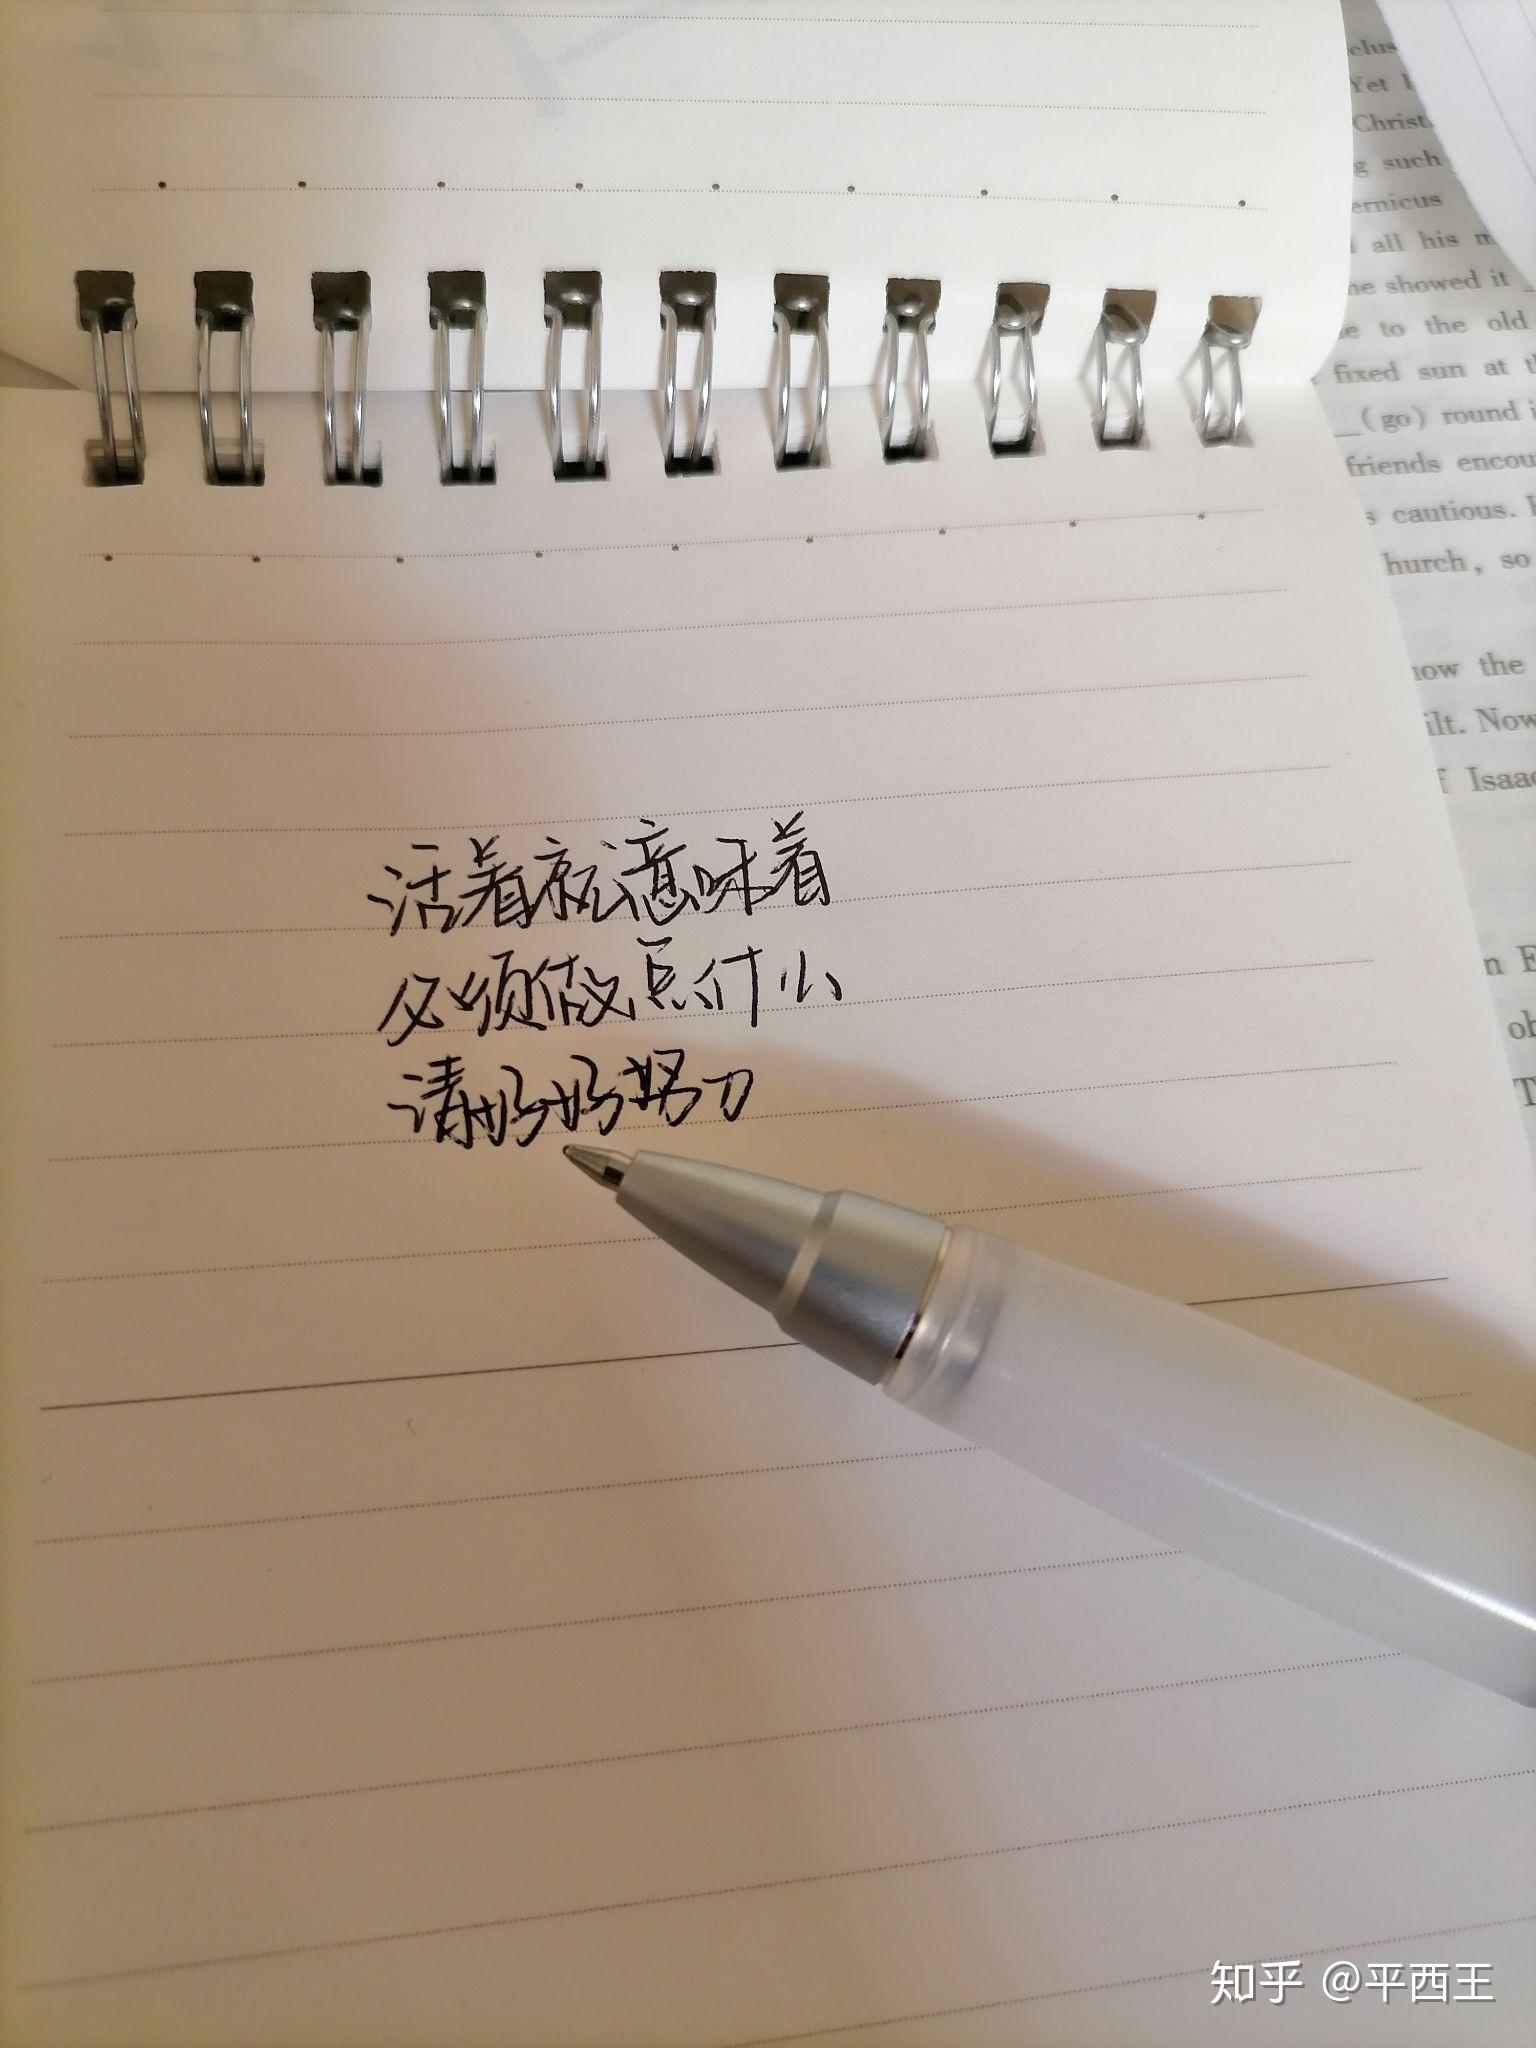 clus
Yet
Christ
g such
ernicus
all his m
he showed it
e to the old
fixed sun at t
(go) round i
friends encou
s cautious.
hurch, so
now the
ilt. Now
f Isaac
n E
ob
T
活着就意味着
必须做点什么
请好好努力
知乎 @平西王